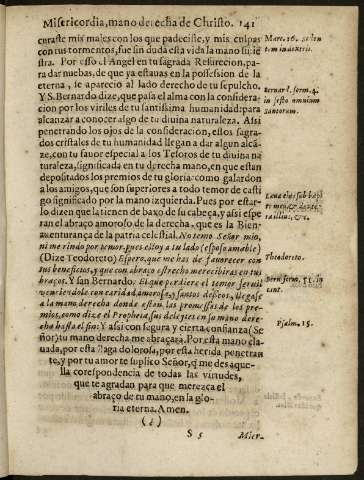 Misericordia, mano derecha de Christo. 141
curaste mis males con los que padeciste, y mis culpas
con tus tormentos, fue sin duda esta vida la mano siniestra.
Por esso el Angel en tu sagrada Resurecion, para
dar nuebas, de que ya estauas en la possession de la
eterna, te aparecio al lado derecho de tu sepulcho.
Y S. Bernardo dize, que pasa el alma con la consideracion
por los viriles de tu santissima humanidad: para
alcanzar a conocer algo de tu diuina naturaleza. Assi
penetrando los ojos de la consideracion, estos sagrados
cristales de tu humanidad llegan a dar algun alcãze,
con tu fauor especial a los Tesoros de tu diuina naturaleza,
significada en tu derecha mano, en que estan
depositados los premios de tu gloria: como galardon
a los amigos, que son superiores a todo temor de castigo
significado por la mano izquierda. Pues por estarlo
dizen que la tienen de baxo de su cabeça, y assi esperan
el abraço amoroso de la derecha, que es la Bienauenturança
de la patria celestial. No temo Señor mio,
ni me rindo por temor, pues estoy a tu lado (esposo amable)
(Dize Teodoreto) Espero, que me has de fauorecer con
tus beneficios, y que con abraço estrecho me recibiras en tus
braços. Y san Bernardo. El que perdiere el temor seruil
venciendole con caridad amorosa, y santos deseos, llegase
a la mano derecha donde estan las promessas de los premios,
como dize el Propheta, sus deleytes en ja mano derecha
hasta el fin: Y assi con segura y cierta confianza (Señor)
tu mano derecha me abraçara. Por esta mano clauada,
por esta llaga dolorosa, por esta herida penetrante,
y por tu amor te suplico Señor, q̃ me des aquella
corespondencia de todas las virtudes,
que te agradan para que merezca el
abraço de tu mano, en la gloria
eterna. Amen.
S 5 Mier-
Marc. 16.
Bernar. serm. 4.
in festo omnium
sanctorum.
Theodoreto.
Bern. serm. 51. in
cant.
Psalm. 15.